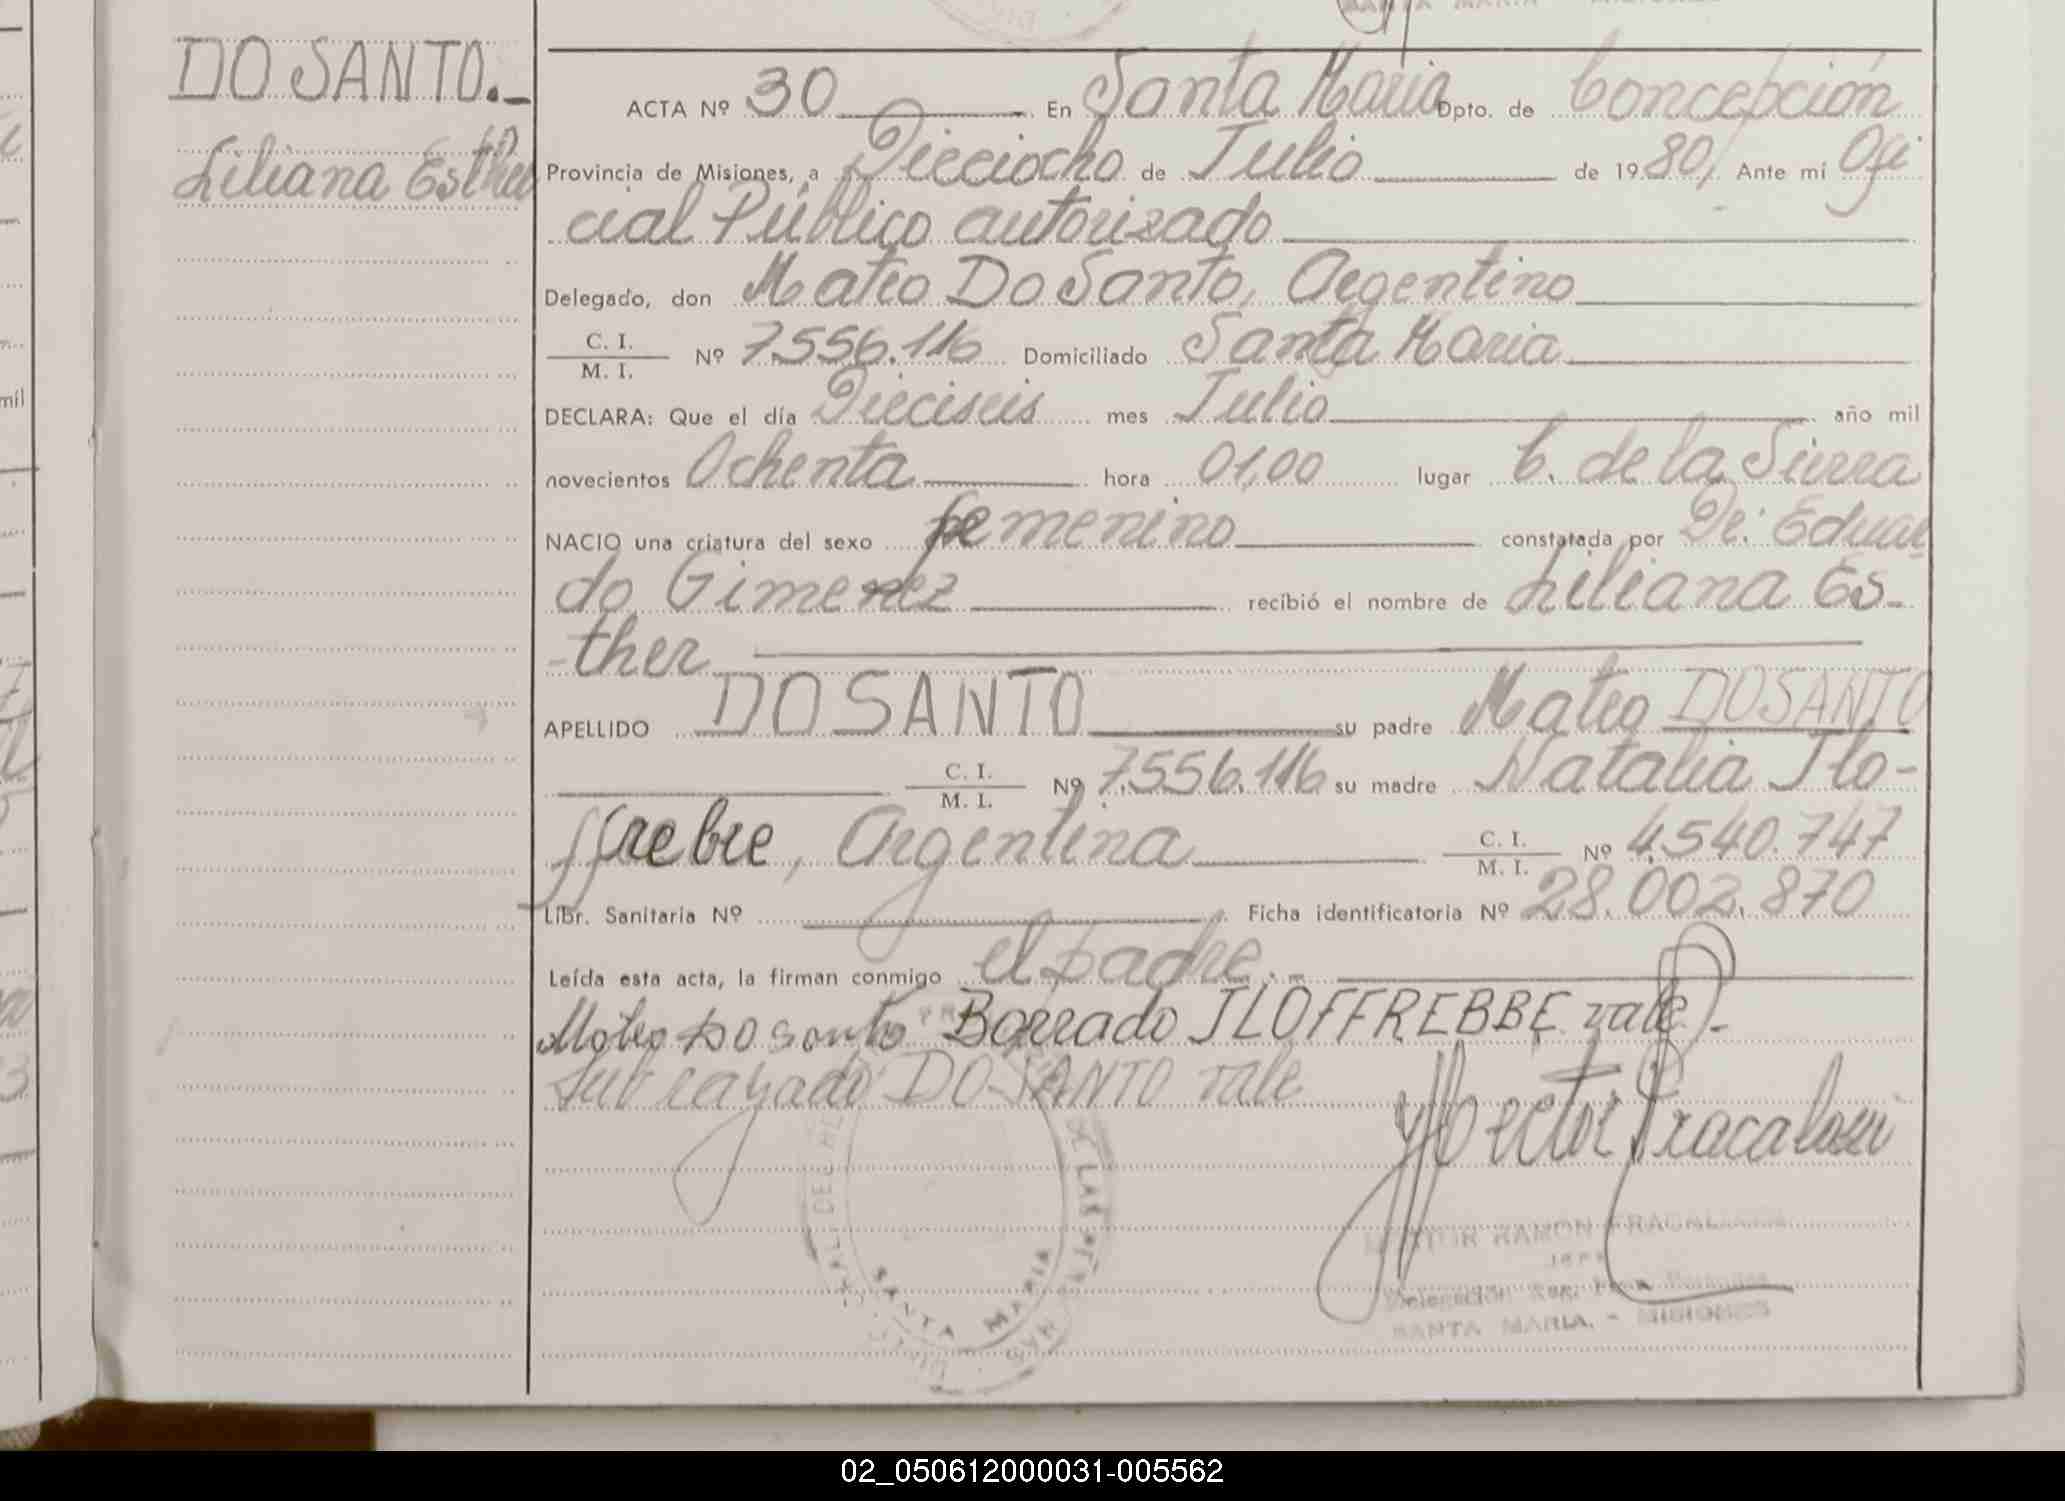 DO SANTO.-
Liliana Esther
ACTA Nº 30 En Santa Maria Dpto. de Concepción
Provincia de Misiones, a Dieciocho de Julio de 1980, Ante mí Ofi
cial Público autorizado
Delegado, don Mateo Do Santo, Argentino
C. I.
M. I. Nº 7.556.116 Domiciliado Santa Maria
DECLARA: Que el día Dieciseis mes Julio año mil
novecientos Ochenta hora 01,00 lugar C. de la Sierra
NACIO una criatura del sexo femenino constatada por Dr. Eduar
do Gimenez recibió el nombre de Liliana Es-
-ther
APELLIDO DO SANTO su padre Mateo DO SANTO
C. I.
M. I. Nº 7.556.116 su madre Natalia Ilo-
ffrebre, Argentina C. I.
M. I. Nº 4.540.747
Libr. Sanitaria Nº Ficha identificatoria Nº 28.002.870
Leída esta acta, la firman conmigo el padre.-
Mateo Do santo Borrado ILOFFREBBE vale.-
Sub rayado DO SANTO vale
Hector Fracalossi
SANTA MARIA
HECTOR RAMON
JEFE
SANTA MARIA. - MISIONES
mil
02_050612000031-005562